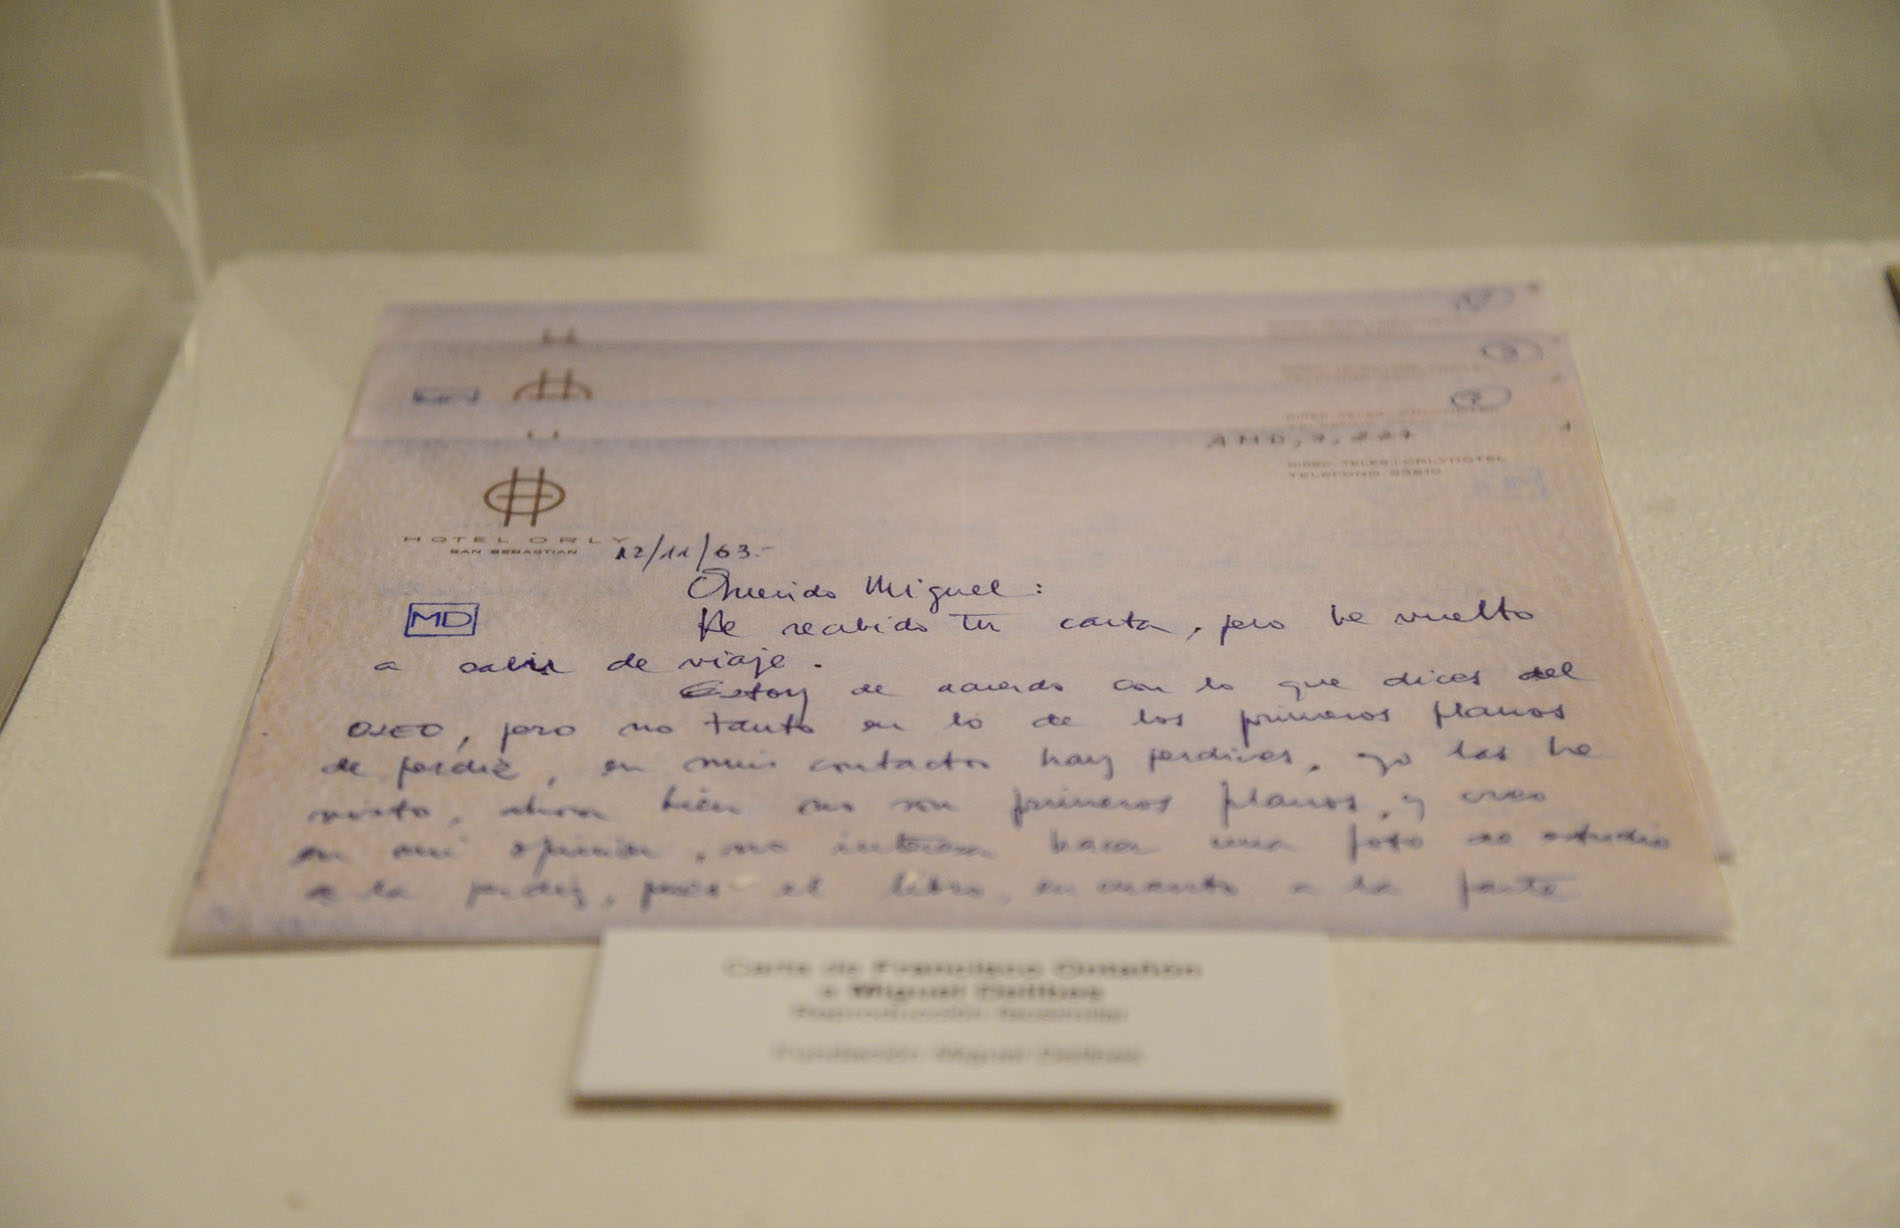 AMD, 7, 227
DIREC. TELEG.: ORLYHOTEL
TELEFONO
HOTEL ORLY
SAN SEBASTIAN
12/11/63.-
Querido Miguel:
MD
He recibido tu carta, pero he vuelto
a salir de viaje.
Estoy de acuerdo con lo que dices del
OJEO, pero no tanto en lo de los primeros planos
de perdiz, en mis contactos hay perdices, yo las he
visto, ahora bien no son primeros planos, y creo
en mi opinion, no interesa hacer una foto de estudio
a la perdiz, pues el libro, en cuanto a la parte
Carta de Francisco Ontañón
a Miguel Delibes
Reproducción facsímilar
Fundación Miguel Delibes